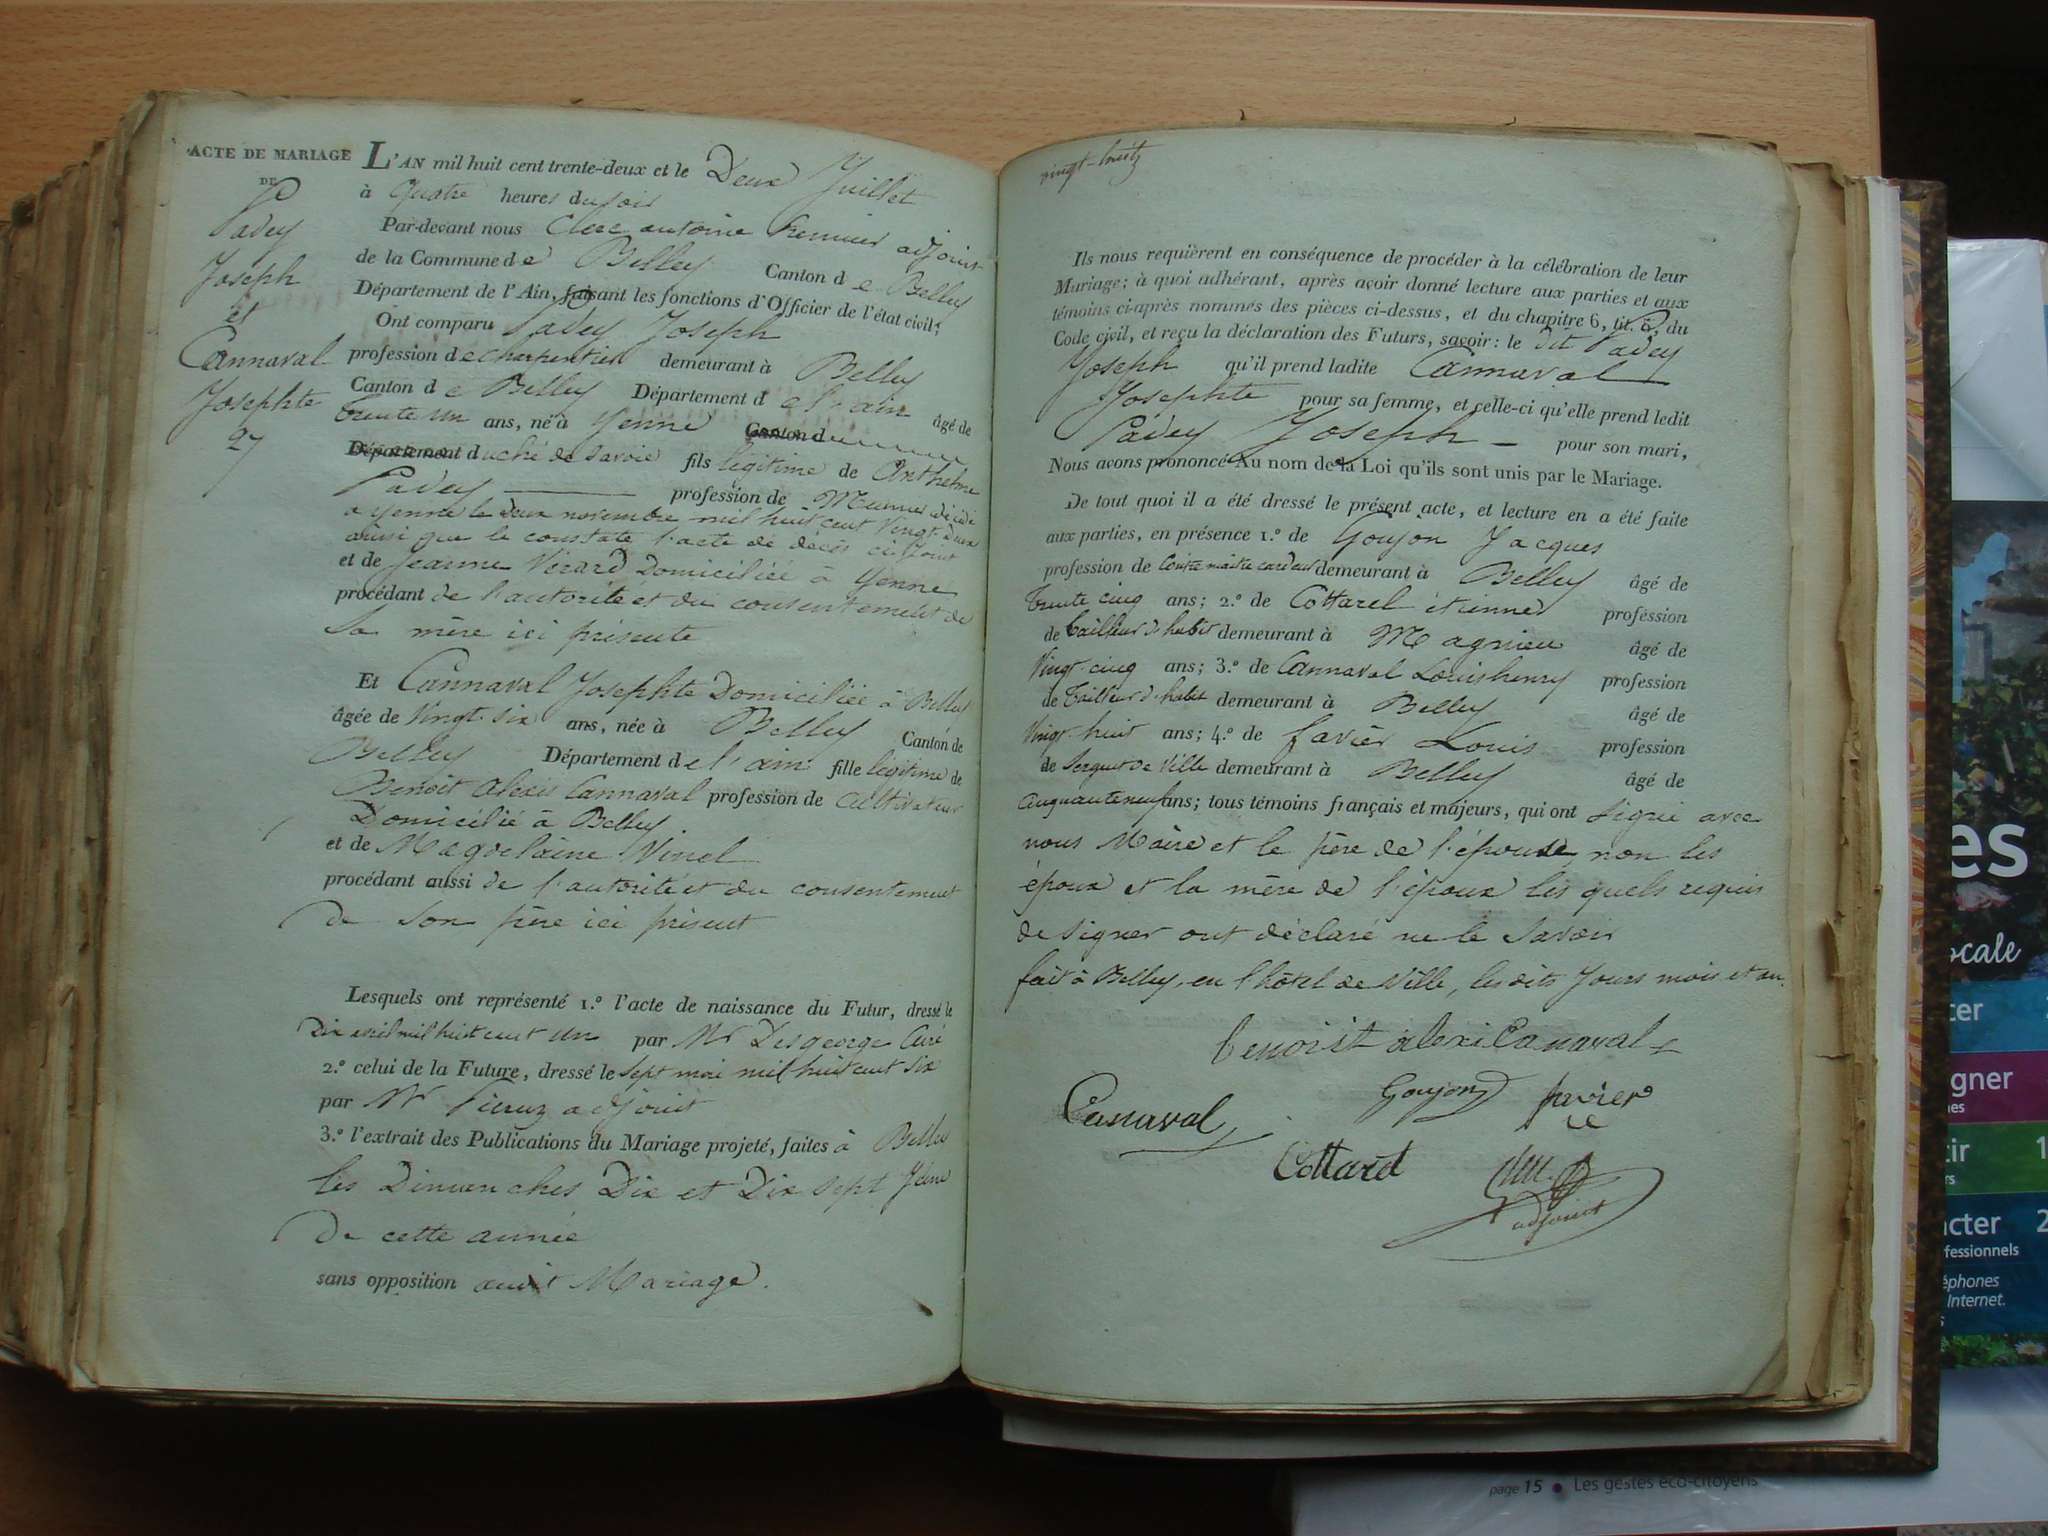 ACTE DE MARIAGE
DE
Padey
Joseph
et
Cannaval
Josephte
27
L'AN mil huit cent trente-deux et le Deux Juillet
à quatre heures du soir
Par-devant nous Clerc antoine premier adjoint
de la Commune de Belley Canton de Belley
Département de l'Ain, faisant les fonctions d'Officier de l'état civil;
Ont comparu Padey Joseph
profession de charpentier demeurant à Belley
Canton de Belley Département de l'ain âgé de
trente un ans, né à Yenne Canton d
Département duché de Savoie fils légitime de Anthelme
Padey profession de Meunier décédé
a Yenne le deux novembre mil huit cent vingt deux
ainsi que le constate l'acte de décès ci joint
et de Jeanne Vérard Domiciliée à Yenne
procédant de l'autorité et du consentement de
Sa mère ici présente
Et Cannaval Josephte Domiciliée à Belley
âgée de vingt-six ans, née à Belley Canton de
Belley Département de l'ain fille légitime de
Benoit Alexis Cannaval profession de Cultivateur
Domicilié à Belley
et de Magdelaine Vinel
procédant aussi de l'autorité et du consentement
de Son père ici présent
Lesquels ont représenté 1.º l'acte de naissance du Futur, dressé le
Dix avril mil huit cent un par Mr Desgeorge Curé
2.º celui de la Future, dressé le sept mai mil huit cent six
par Mr adjoint
3.º l'extrait des Publications du Mariage projeté, faites à Belley
les Dimanches Dix et Dix sept Juin
De cette année
sans opposition audit Mariage.
vingt-huit
Ils nous requièrent en conséquence de procéder à la célébration de leur
Mariage; à quoi adhérant, après avoir donné lecture aux parties et aux
témoins ci-après nommés des pièces ci-dessus, et du chapitre 6, tit. 5, du
Code civil, et reçu la déclaration des Futurs, savoir: le dit Padey
Joseph qu'il prend ladite Cannaval
Josephte pour sa femme, et celle-ci qu'elle prend ledit
Padey Joseph pour son mari,
Nous avons prononcé Au nom de la Loi qu'ils sont unis par le Mariage.
De tout quoi il a été dressé le présent acte, et lecture en a été faite
aux parties, en présence 1.º de Goujon Jacques
profession de Contre maitre cardeur demeurant à Belley âgé de
trente cinq ans; 2.º de Cottarel étienne profession
de tailleur d'habit demeurant à Magnieu âgé de
vingt-cinq ans; 3.º de Cannaval Louis henry profession
de tailleur d'habit demeurant à Belley âgé de
vingt-huit ans; 4.º de favier Louis profession
de Sergent de ville demeurant à Belley âgé de
cinquante neuf ans; tous témoins français et majeurs, qui ont signé avec
nous Maire et le père de l'épouse, non les
époux et la mère de l'époux les quels requis
de signer ont déclaré ne le Savoir
fait à Belley, en l'hôtel de Ville, les dits Jours mois et an.
benoist alexi Canaval
Canaval
Goujon
favier
Cottard
adjoint
es
ocale
cter
gner
nes
tir
1
rs
acter
2
fessionnels
éphones
Internet.
page 15 • Les gestes éco-citoyens